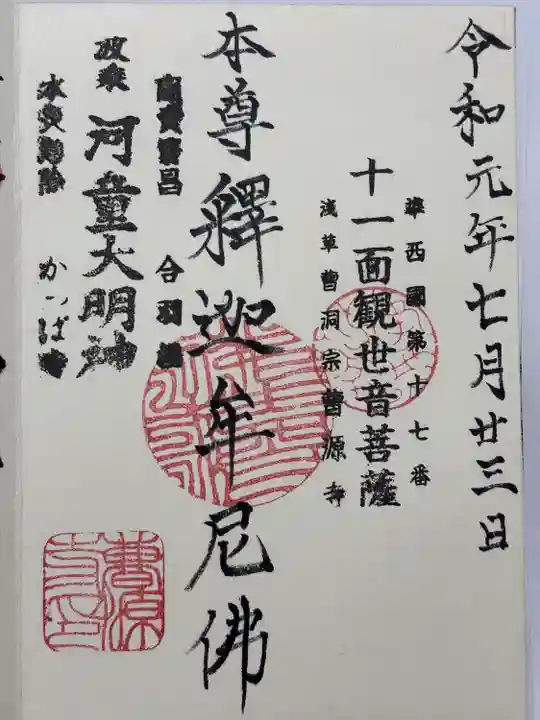 令和元年七月廿三日
準西國第十七番
十一面観世音菩薩
浅草曹洞宗曹源寺
本尊釋迦牟尼佛
商賣繁昌 合羽
波乗 河童大明神
水難除 かっぱ寺
曹源寺印